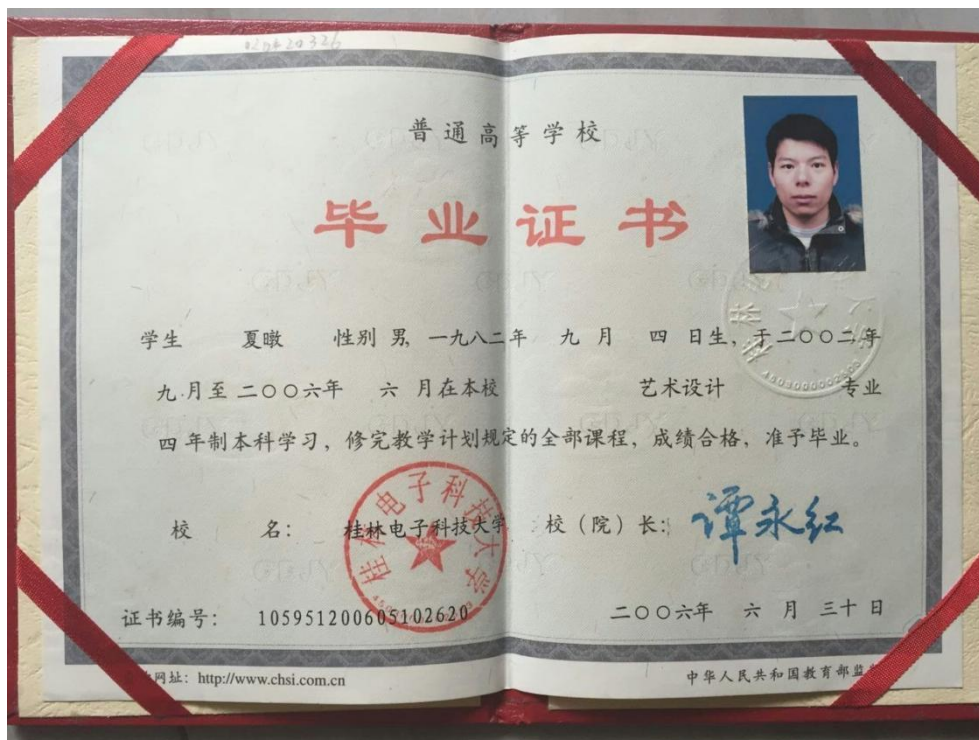 普通高等学校
毕业证书
学生 夏暾 性别 男, 一九八二年 九 月 四 日生, 于二〇〇二年
九月至二〇〇六年 六 月在本校 艺术设计 专业
四年制本科学习, 修完教学计划规定的全部课程, 成绩合格, 准予毕业。
校 名: 桂林电子科技大学 校（院）长: 谭永红
桂林电子科技大学
证书编号: 105951200605102620 二〇〇六年 六 月 三十日
网址: http://www.chsi.com.cn 中华人民共和国教育部监